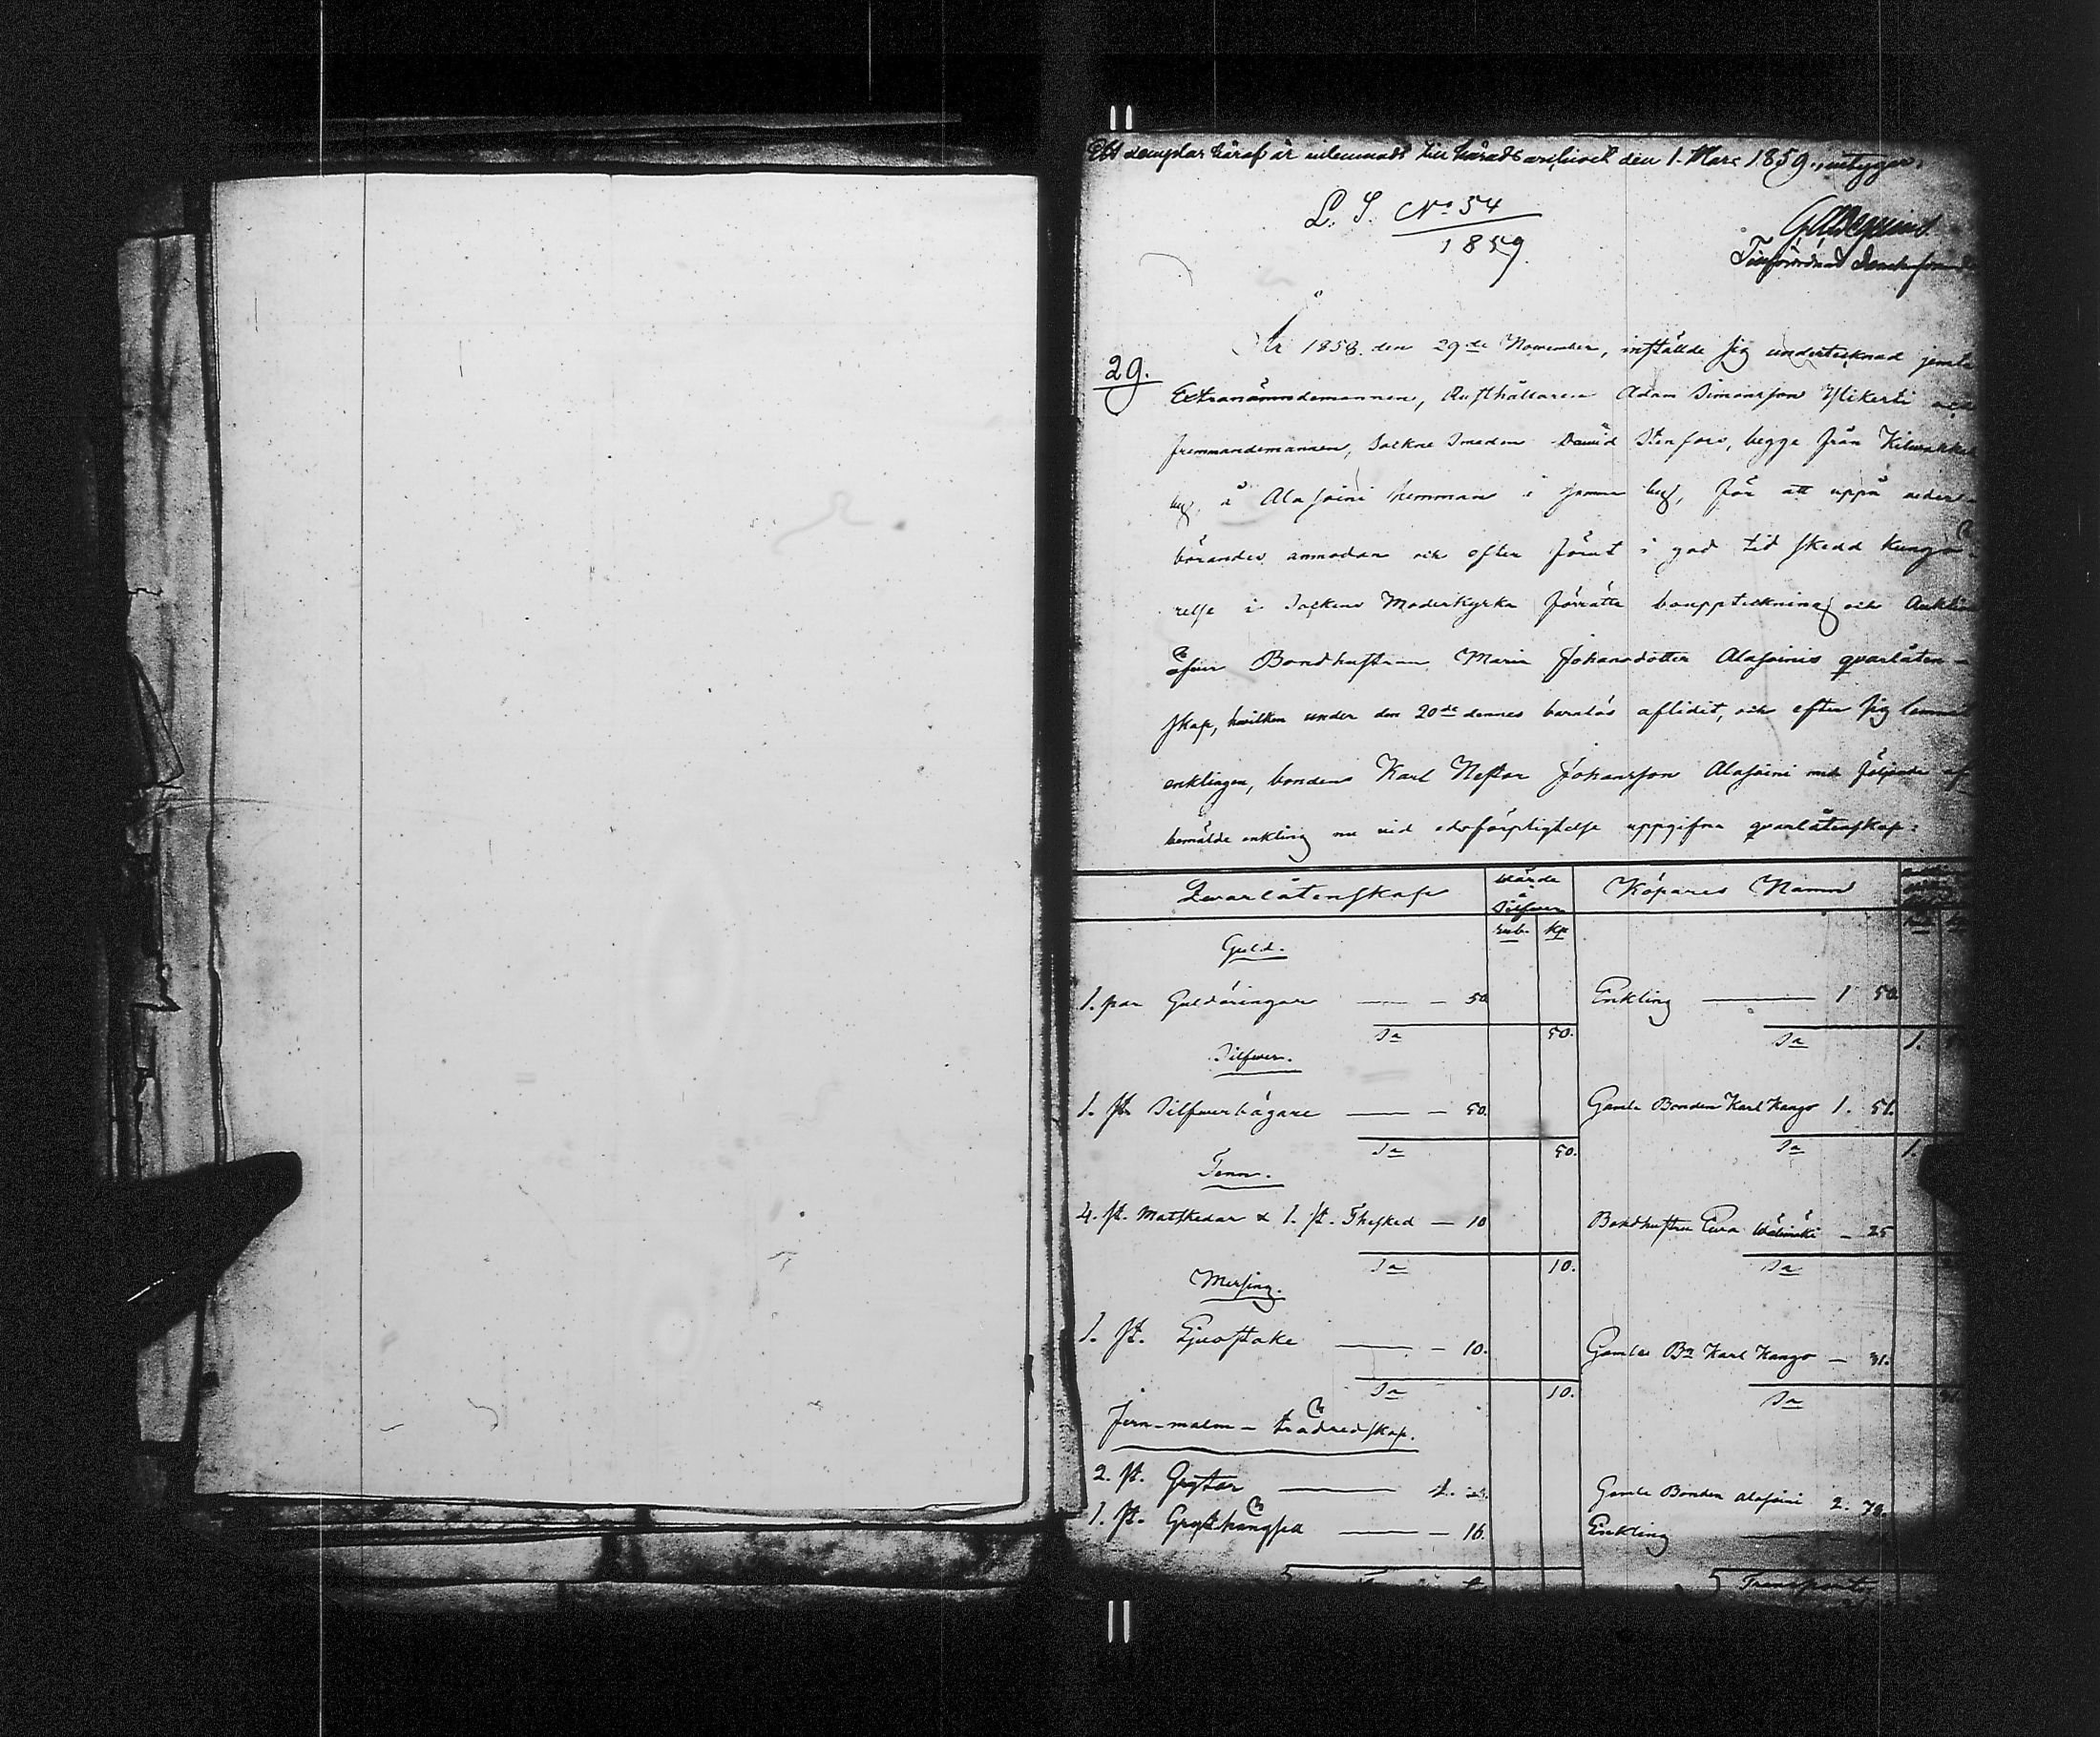 Ett exemplar häraf är inlemnadt till häradsarchivet den 1. Mars 1859., intygar:
L. S. No 54
1859.
Tillförordnad Domhafvande
29.
År 1858. den 29de November, inställde sig undertecknad jemte
Extranämndemannen, Rusthållaren Adam Simonsson Ylikerti och
fremmandemannen, Sockne Smeden David Stenfors, begge från Kilvakkala
by, å Alasoini hemman i samma by, för att uppå veder-
börandes anmodan och efter förut i god tid skedd kungö-
relse i Sockens Moderkyrka förrätta bouppteckning och Auktion
öfver Bondhustrun Maria Johansdotter Alasoinis qvarlåten-
skap, hvilken under den 20de dennes barnlös aflidit, och efter sig lemnat
enklingen, bonden Karl Nestor Johansson Alasoini med följande af
bemälde enkling nu vid edsförpligtelse uppgifna qvarlåtenskap:
Qvarlåtenskap Värde i Silfver Köpares Namn
Rub. Kp
Guld.
1. par Guldöringar — — 50 Enkling — 1 50
Sa 50. Sa 1.
Silfver.
1. st. Silfverbägare — — 50. Gamle Bonden Karl Kango 1. 51.
Sa 50. Sa 1.
Tenn.
4. st. Matskedar & 1. st. Thesked — 10 Bondhustru Eva Välimäki — 25
Sa 10. Sa
Messing.
1. st. Ljusstake — — 10. Gamle Bn Karl Kango — 31.
Sa 10. Sa
Jern-malm- trädredskap.
2. st. Grytor — Gamle Bonden Alasoini 2.
1. st. Grythängsel — — 16. Enkling —
Transport